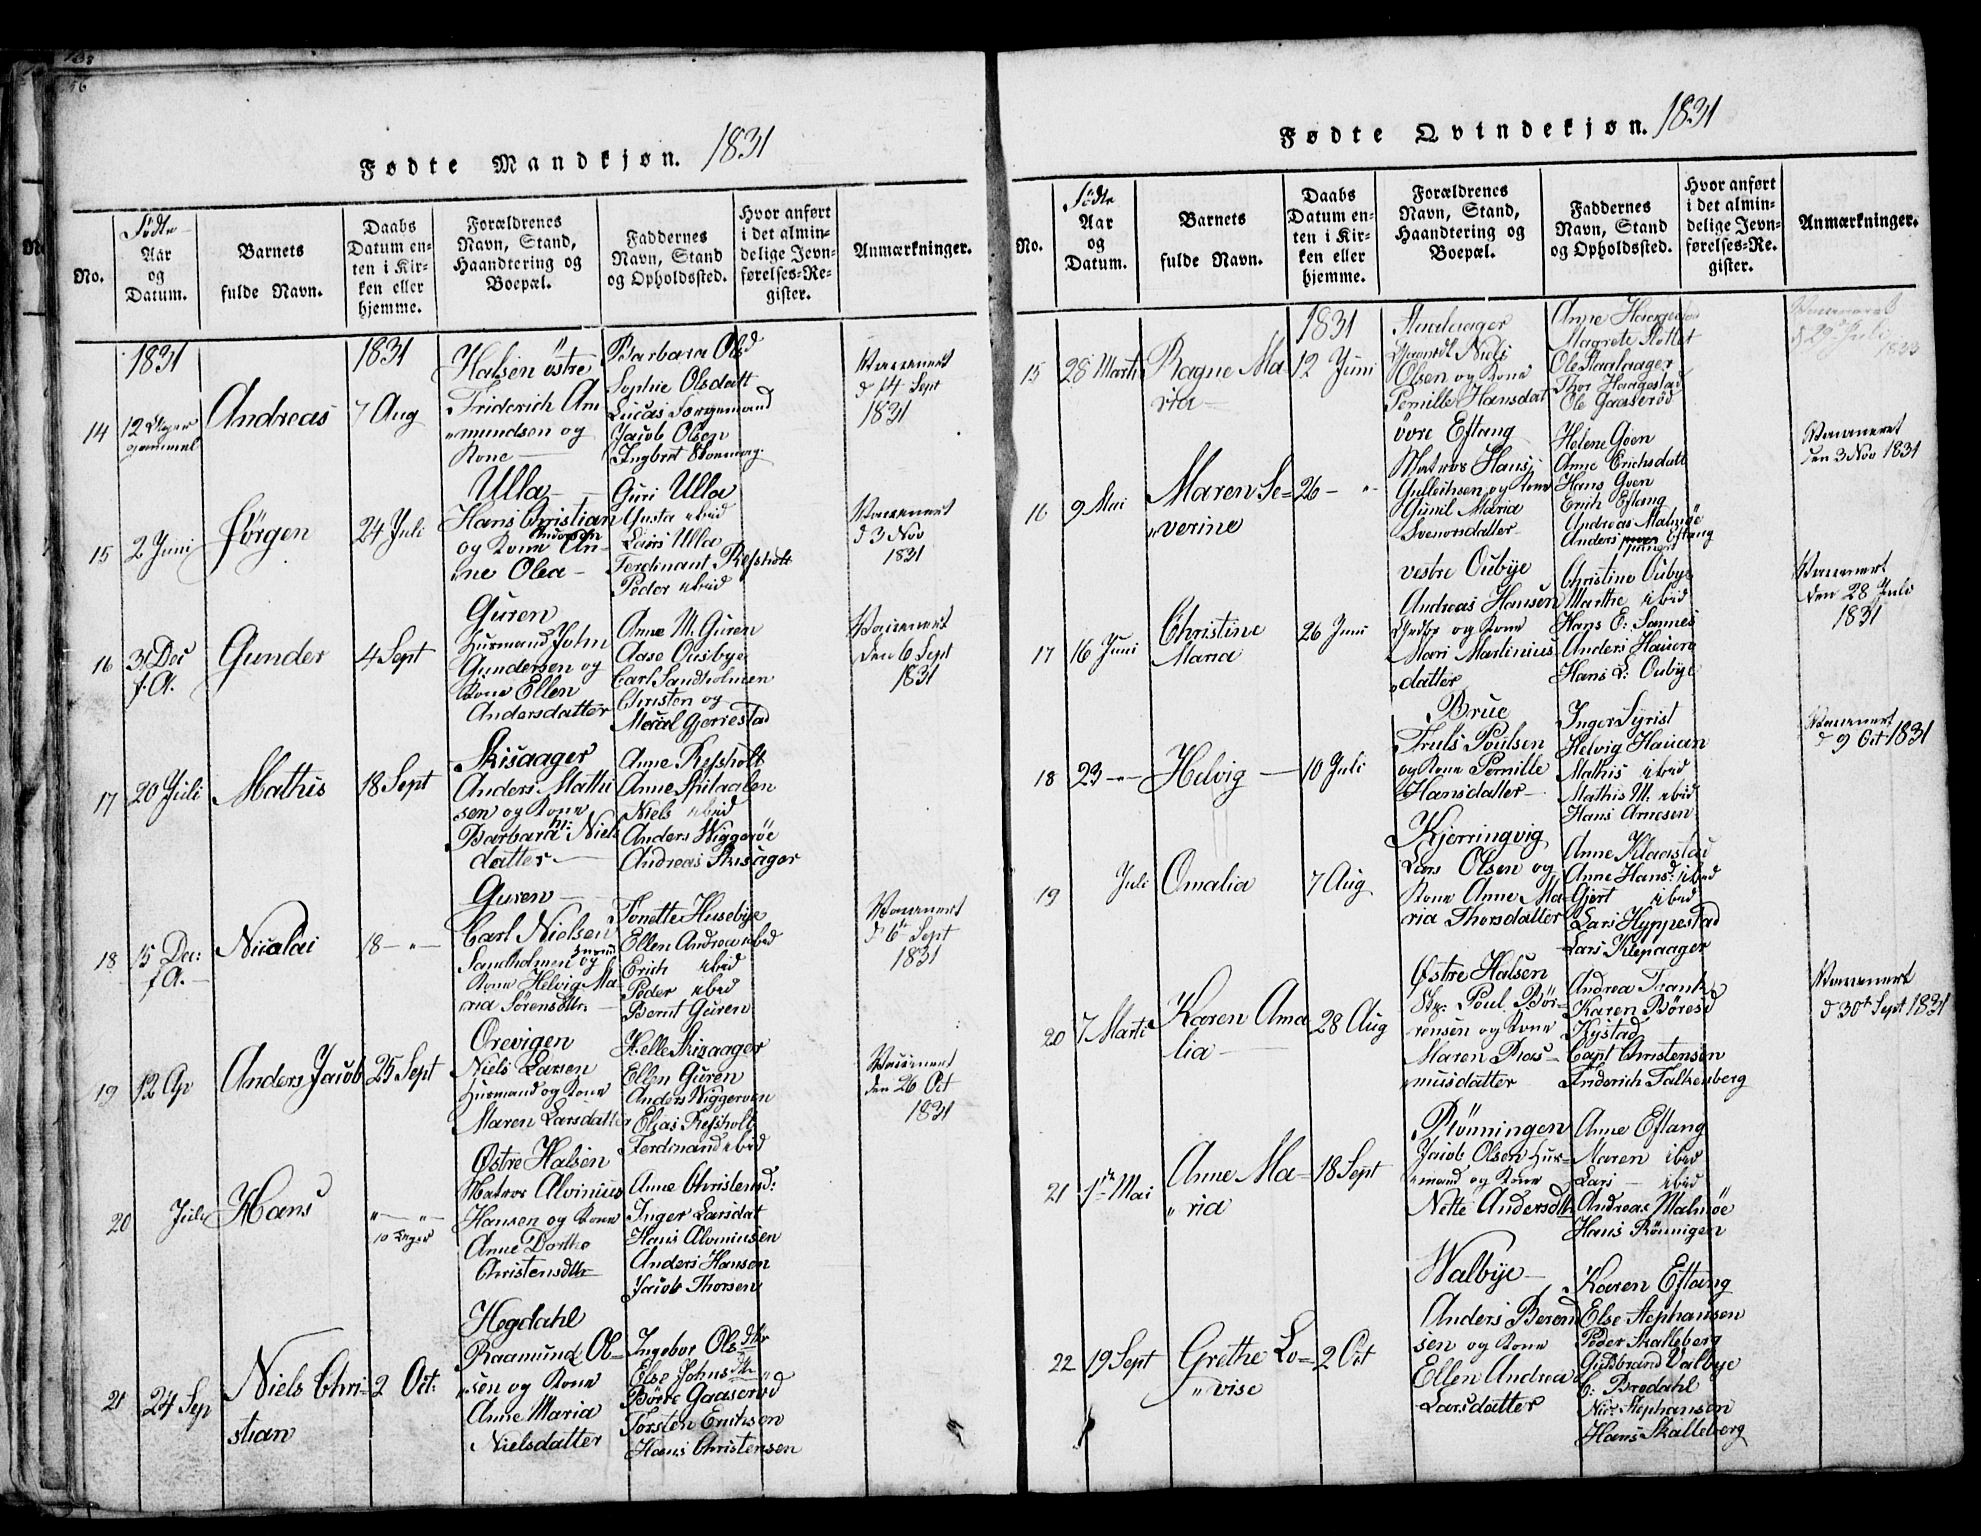 Fødte Mandkjøn. 1831
No.
Fødte
Aar
og
Datum.
Barnets
fulde Navn.
Daabs
Datum en-
ten i Kir-
ken eller
hjemme.
Forældrenes
Navn, Stand,
Haandtering og
Boepæl.
Faddernes
Navn, Stand
og Opholdssted.
Hvor anført
i det almin-
delige Jevn-
førelses-Re-
gister.
Anmærkninger.
1831
14
12 Uger
gammel
Andreas
1831
7 Aug
Halsen östre
Friderich Am
mundsen og
Kone
Barbara Olsd
Sophie Olsdatt
Lucas Sørgemand
Jacob Olsen
Ingbret
Vaccinert
d 14 Sept
1831
15
2 Juni
Jörgen
24 Juli
Ulla
Hans Christian
Andersen
og Kone An-
ne Olea
Guri Ulla
Gusta ibid
Lars Ulla
Ferdinant Refsholt
Peder ibid
Vaccinert
d 3 Nov
1831
16
31 Dec
f. A.
Gunder
4 Sept
Guren
Husmand John
Gundersen og
Kone Ellen
Andersdatter
Anne M. Guren
Aase Ousbye
Carl Sandholmen
Christen og
Gjerrestad
Vaccinert
den 6 Sept
1831
17
20 Juli
Mathis
18 Sept
Skisaager
Anders Mathi
sen og Kone
Barbara M: Niels
datter
Anne Refsholt
Anne
Niels ibid
Anders Wiggeröe
Andreas Skisager
18
15 Dec:
f A.
Nicolai
18 — " —
Guren
Carl Nielsen
Sandholmen og
Kone Helvig Ma-
ria Sørensdttr
Tonette Husebye
Ellen Andrea ibid
Erich ibid
Peder ibid
Bernt Guren
Vaccinert
d 6te Sept
1831
19
12 Ap
Anders Jacob
25 Sept
Orevigen
Niels Larsen
Husmand og Kone
Maren Larsdatter
Helle Skisaager
Ellen Guren
Anders Wiggeroen
Elias Refsholt
Ferdinand ibid
Vaccinert
den 26 Oct
1831
20
Juli
Hans
" — " —
Østre Halsen
Matros Alvinius
Hansen og Kone
Anne Dorthe
Christensdttr
Anne Christensd:
Inger Larsdat
Hans Alvinusen
Anders Hansen
Jacob Thorsen
21
24 Sep
Niels Chri-
stian
2 Oct:
Hegdahl
Raamund Ol-
sen og Kone
Anne Maria
Nielsdatter
Ingebor Olsdttr
Else Johnsdttr
Börre Gaaseröd
Torsten Erichsen
Hans Christensen
Fødte Qvindekjøn. 1831
No.
Fødte
Aar
og
Datum.
Barnets
fulde Navn.
Daabs
Datum en-
ten i Kir-
ken eller
hjemme.
Forældrenes
Navn, Stand,
Haandtering og
Boepæl.
Faddernes
Navn, Stand
og Opholdssted.
Hvor anført
i det almin-
delige Jevn-
førelses-Re-
gister.
Anmærkninger.
15
28 Marti
Ragne Ma-
ria
1831
12 Juni
Staalaager
Niels
Olsen og Kone
Pernille Hansdat
Anne Haugestad
Magrete Stottet
Ole Staalaager
Thor Haugestad
Ole Gaaserød
Vaccineret
d 29 Juli
1833
16
9 Mai
Maren Se-
verine
26 — " —
övre Eftang
Matros Hans
Gulleichsen og Kone
Gunil Maria
Svenorsdatter
Helene Goen
Anne Erichsdatt
Hans Goen
Erich Eftang
Andreas Malmöe
Anders Eftang
Vaccineret
den 3 Nov 1831
17
16 Juni
Christine
Maria
26 Juni
vestre Oubye
Andreas Hansen
og Kone
Mari Martinius-
datter
Christine Oubye
Marthe ibid
Hans E: Sannes
Anders Hauen
Hans L: Oubye
Vaccinert
den 28 Juli
1831
18
23 — " —
Helvig
10 Juli
Brue
Truls Poulsen
og Kone Pernille
Hansdatter
Inger Syrist
Helvig Hauan
Mathis ibid
Mathis M: ibid
Hans Arnesen
Vaccinert
d 9 Oct 1831
19
Juli
Omalia
7 Aug
Kjerringvig
Lars Olsen og
Kone Anne Ma-
ria Thorsdatter
Anne Klaastad
Anne Hansd: ibid
Gjert ibid
Lars Hyppestad
Lars Klepaager
20
7 Marti
Karen Ama
lia
28 Aug
Østre Halsen
Poul Bör-
rensen og Kone
Maren Ras-
musdatter
Andrea Frantz
Karen Böresd
Rystad
Capt Christensen
Friderich Falkenberg
Vaccinert
d 30te Sept 1831
21
1te Mai
Anne Ma-
ria
18 Sept
Rönningen
Jacob Olsen Hus-
mand og Kone
Nette Andersdttr
Anne Eftang
Maren ibid
Lars — ibid
Andreas Malmöe
Hans Rönnigen
22
19 Sept
Grethe Lo-
vise
2 Oct
Walbye
Anders Berend
sen og Kone
Ellen Andrea
Larsdatter
Karen Eftang
Else Stephansen
Peder Skalleberg
Guldbrand Valbye
C: Bredahl
Nic: Stephansen
Hans Skalleberg